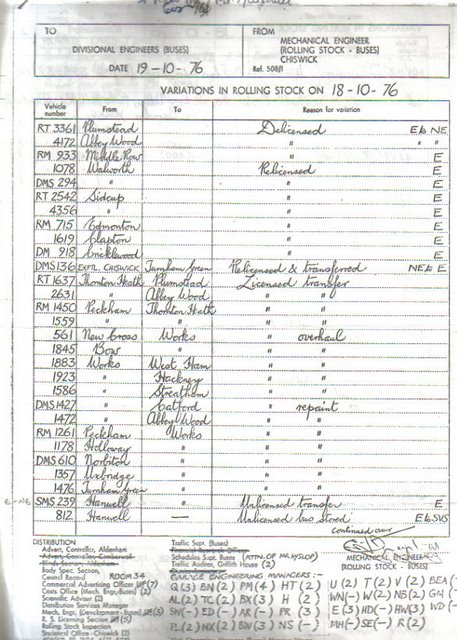 TO
DIVISIONAL ENGINEERS (BUSES)
DATE 19-10-76
FROM
MECHANICAL ENGINEER
(ROLLING STOCK - BUSES)
CHISWICK
Ref. 508/1
VARIATIONS IN ROLLING STOCK ON 18-10-76
Vehicle number From To Reason for variation
RT 3361 Plumstead Delicensed E & NE
4172 Abbey Wood " " "
RM 933 Middle Row " E
1078 Walworth Relicensed E
DMS 294 " " E
RT 2542 Sidcup " E
4356 " " E
RM 715 Edmonton " E
1619 Clapton " E
DM 918 Cricklewood " E
DMS 136 EXPTL. CHISWICK Turnham Green Relicensed & transferred NE & E
RT 1637 Thornton Heath Plumstead Licensed transfer
2631 " Abbey Wood " "
RM 1450 Peckham Thornton Heath " "
1559 " " " "
561 New Cross Works " overhaul
1845 Bow " " "
1883 Works West Ham " "
1923 " Hackney " "
1586 " Streatham " "
DMS 1427 " Catford " repaint
1472 " Abbey Wood " "
RM 1261 Peckham Works " "
1178 Holloway " " "
DMS 610 Norbiton " " "
1357 Uxbridge " " "
1476 Turnham Green " " "
E-NE SMS 239 Hanwell Unlicensed transfer E
812 Hanwell — Unlicensed bus stored E & SUS
continued over
DISTRIBUTION
Advert. Controller, Aldenham
Advert. Controller, Camberwell
Body Spec. Section,
Central Record ROOM 34
Commercial Advertising Officer (7)
Costs Office (Mech. Engr. Buses) (2)
Scientific Adviser (2)
Distribution Services Manager
Mech. Engr. (Development-Buses) (3)
R. S. Licensing Section (5)
Rolling Stock Inspection
Statistical Office - Chiswick (2)
Traffic Supt. (Buses)
Financial Research Officer
Schedules Supt. Buses (ATTN. OF MR HYSLOP)
Traffic Auditor, Griffith House (2)
GARAGE ENGINEERING MANAGERS:-
MECHANICAL ENGINEER
(ROLLING STOCK - BUSES)
Q (3) BN (2) PM (4) HT (2) U (2) T (2) V (2)
AL (2) TC (2) BK (3) H (2) WN (-) W (2) NB (2)
SW (-) ED (-) AR (-) PR (3) E (3) HD (-) HW (3) WD (-)
PL (2) NX (2) BW (3) NS (-) MH (-) SE (-) R (2)